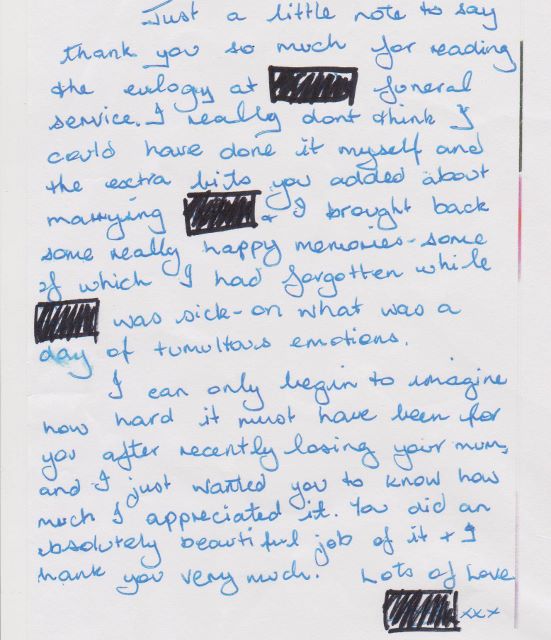 Just a little note to say
thank you so much for reading
the eulogy at funeral
service. I really dont think I
could have done it myself and
the extra bits you added about
marrying & I brought back
some really happy memories - some
of which I had forgotten while
was sick - on what was a
day of tumultous emotions.
I can only begin to imagine
how hard it must have been for
you after recently losing your mum,
and I just wanted you to know how
much I appreciated it. You did an
absolutely beautiful job of it + I
thank you very much. Lots of Love
xxx